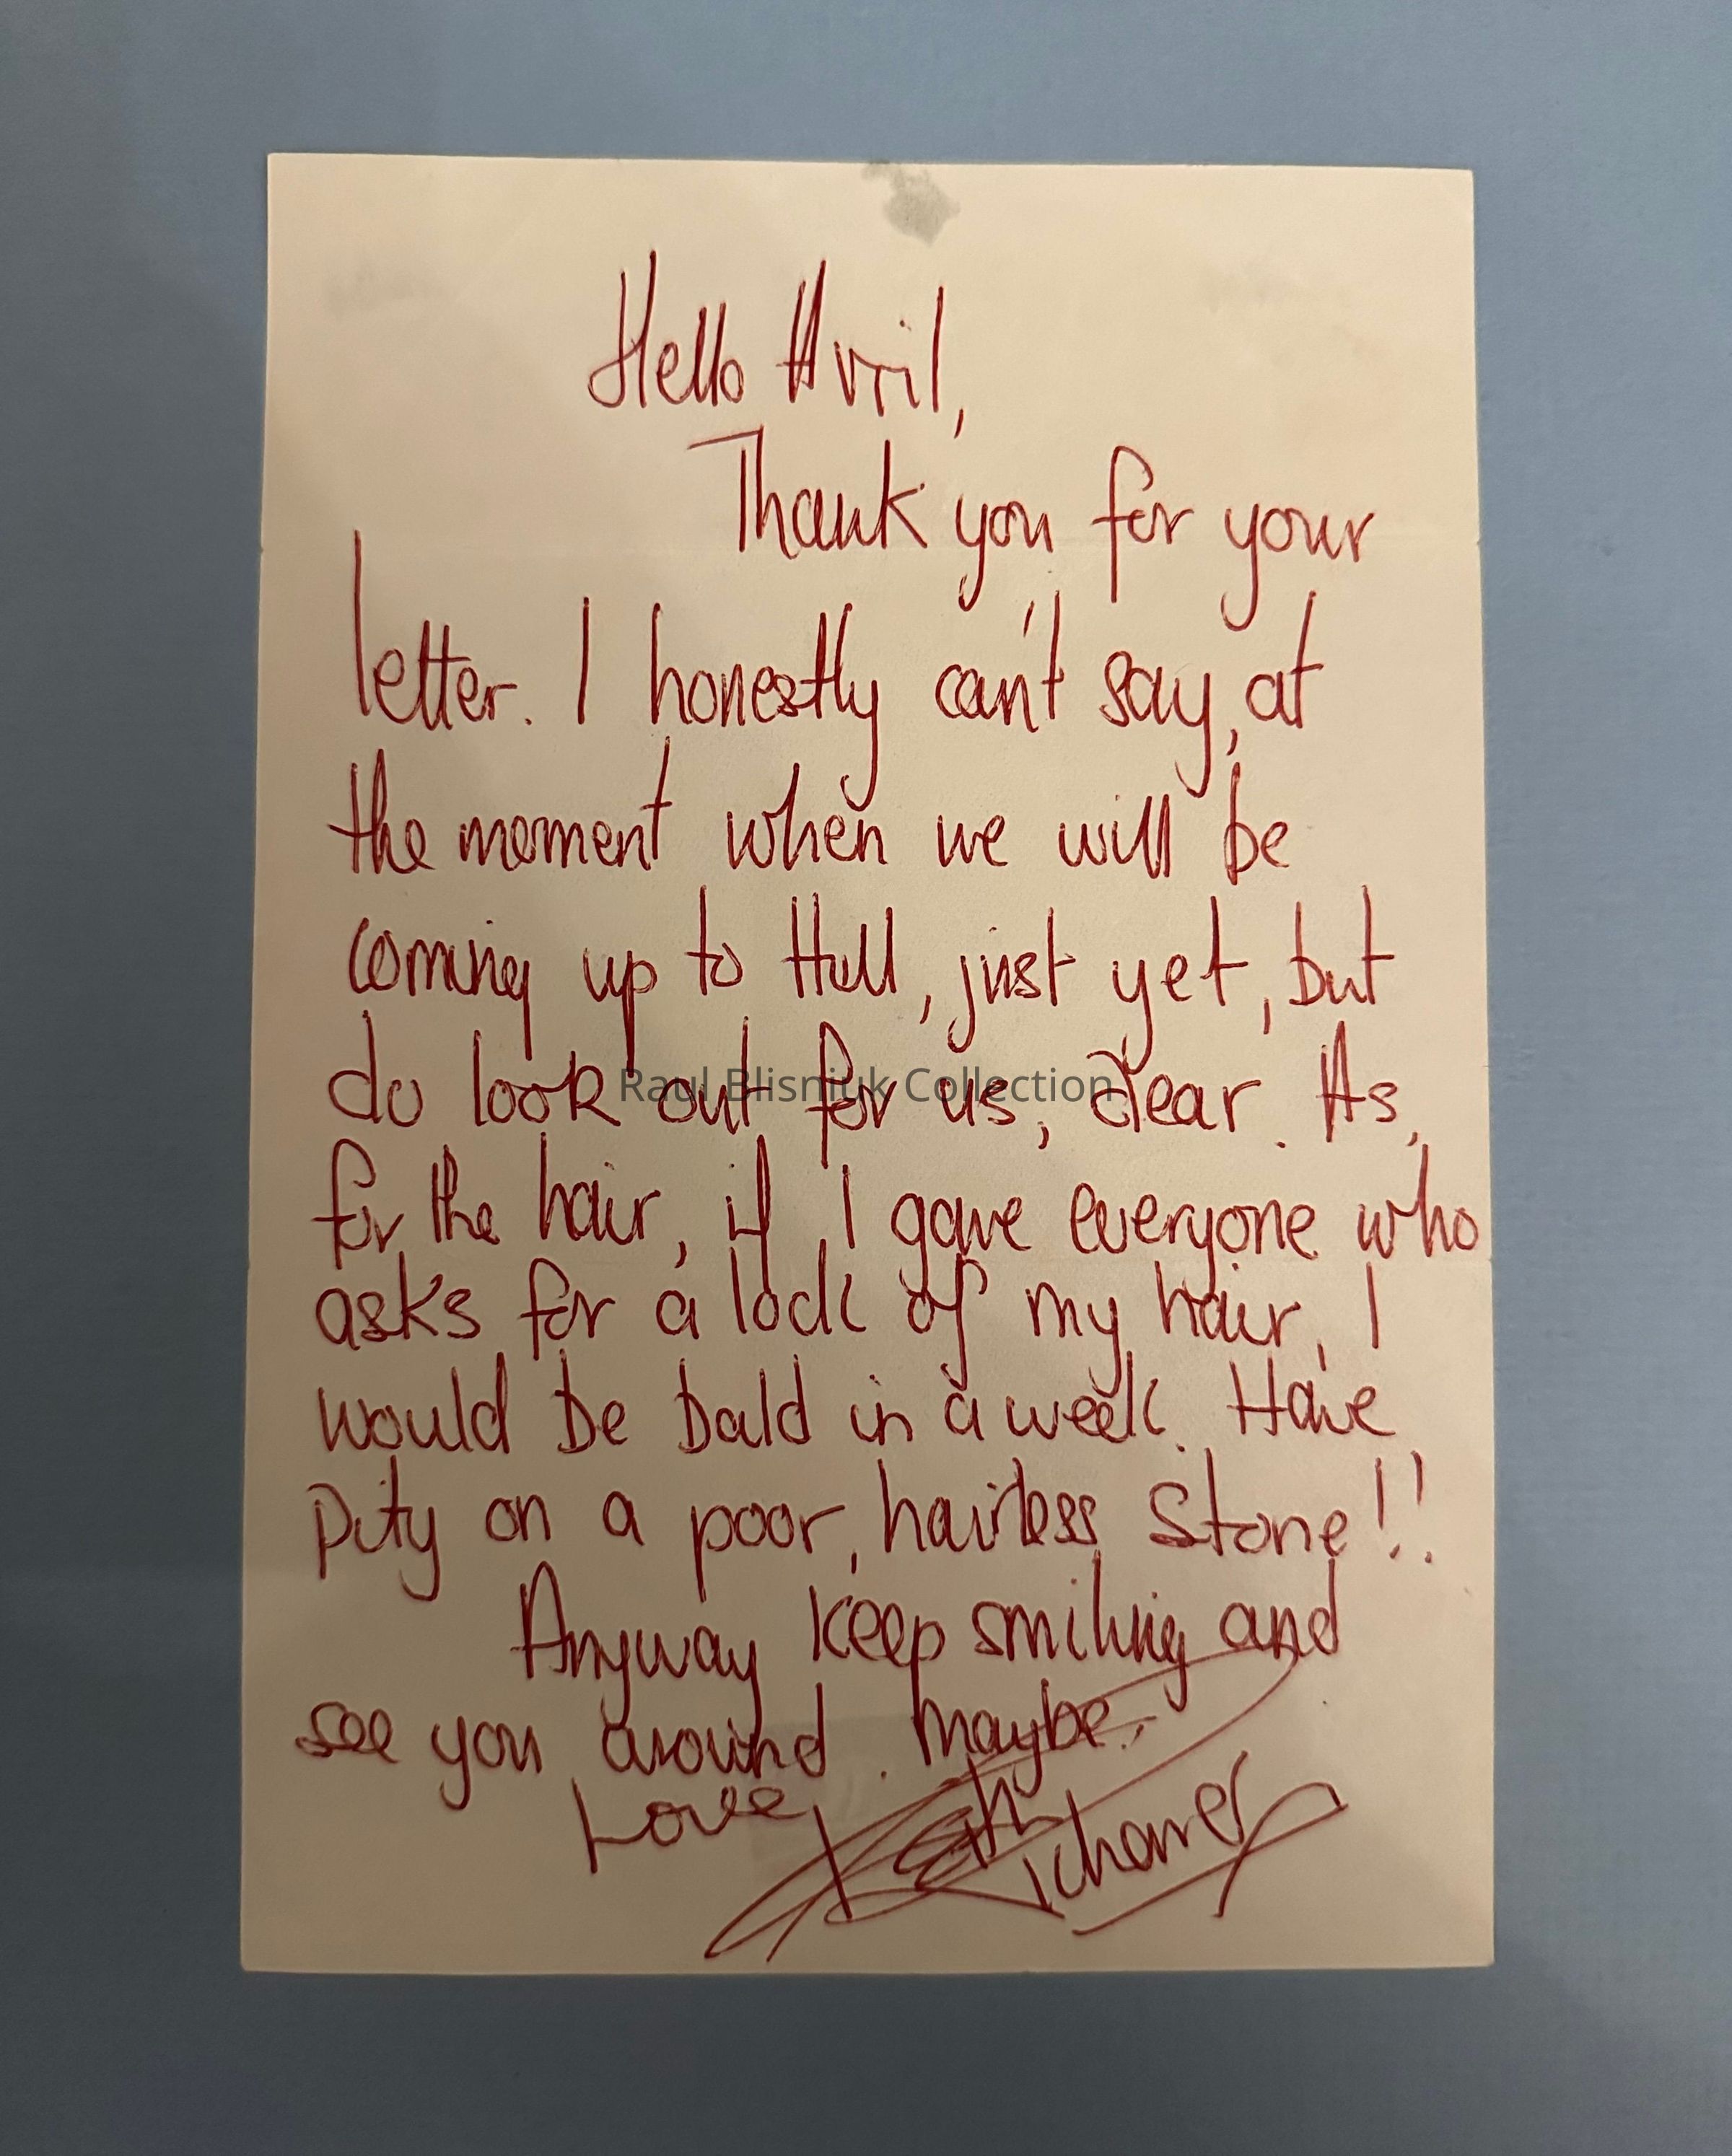 Hello Avril,
Thank you for your
letter. I honestly can't say, at
the moment when we will be
coming up to Hull, just yet, but
do look out for us, dear. As,
for the hair, if I gave everyone who
asks for a lock of my hair, I
would be bald in a week. Have
pity on a poor, hairless Stone!!
Anyway keep smiling and
see you around. maybe.
Love
Keith
Richards
Raul Blisniuk Collection